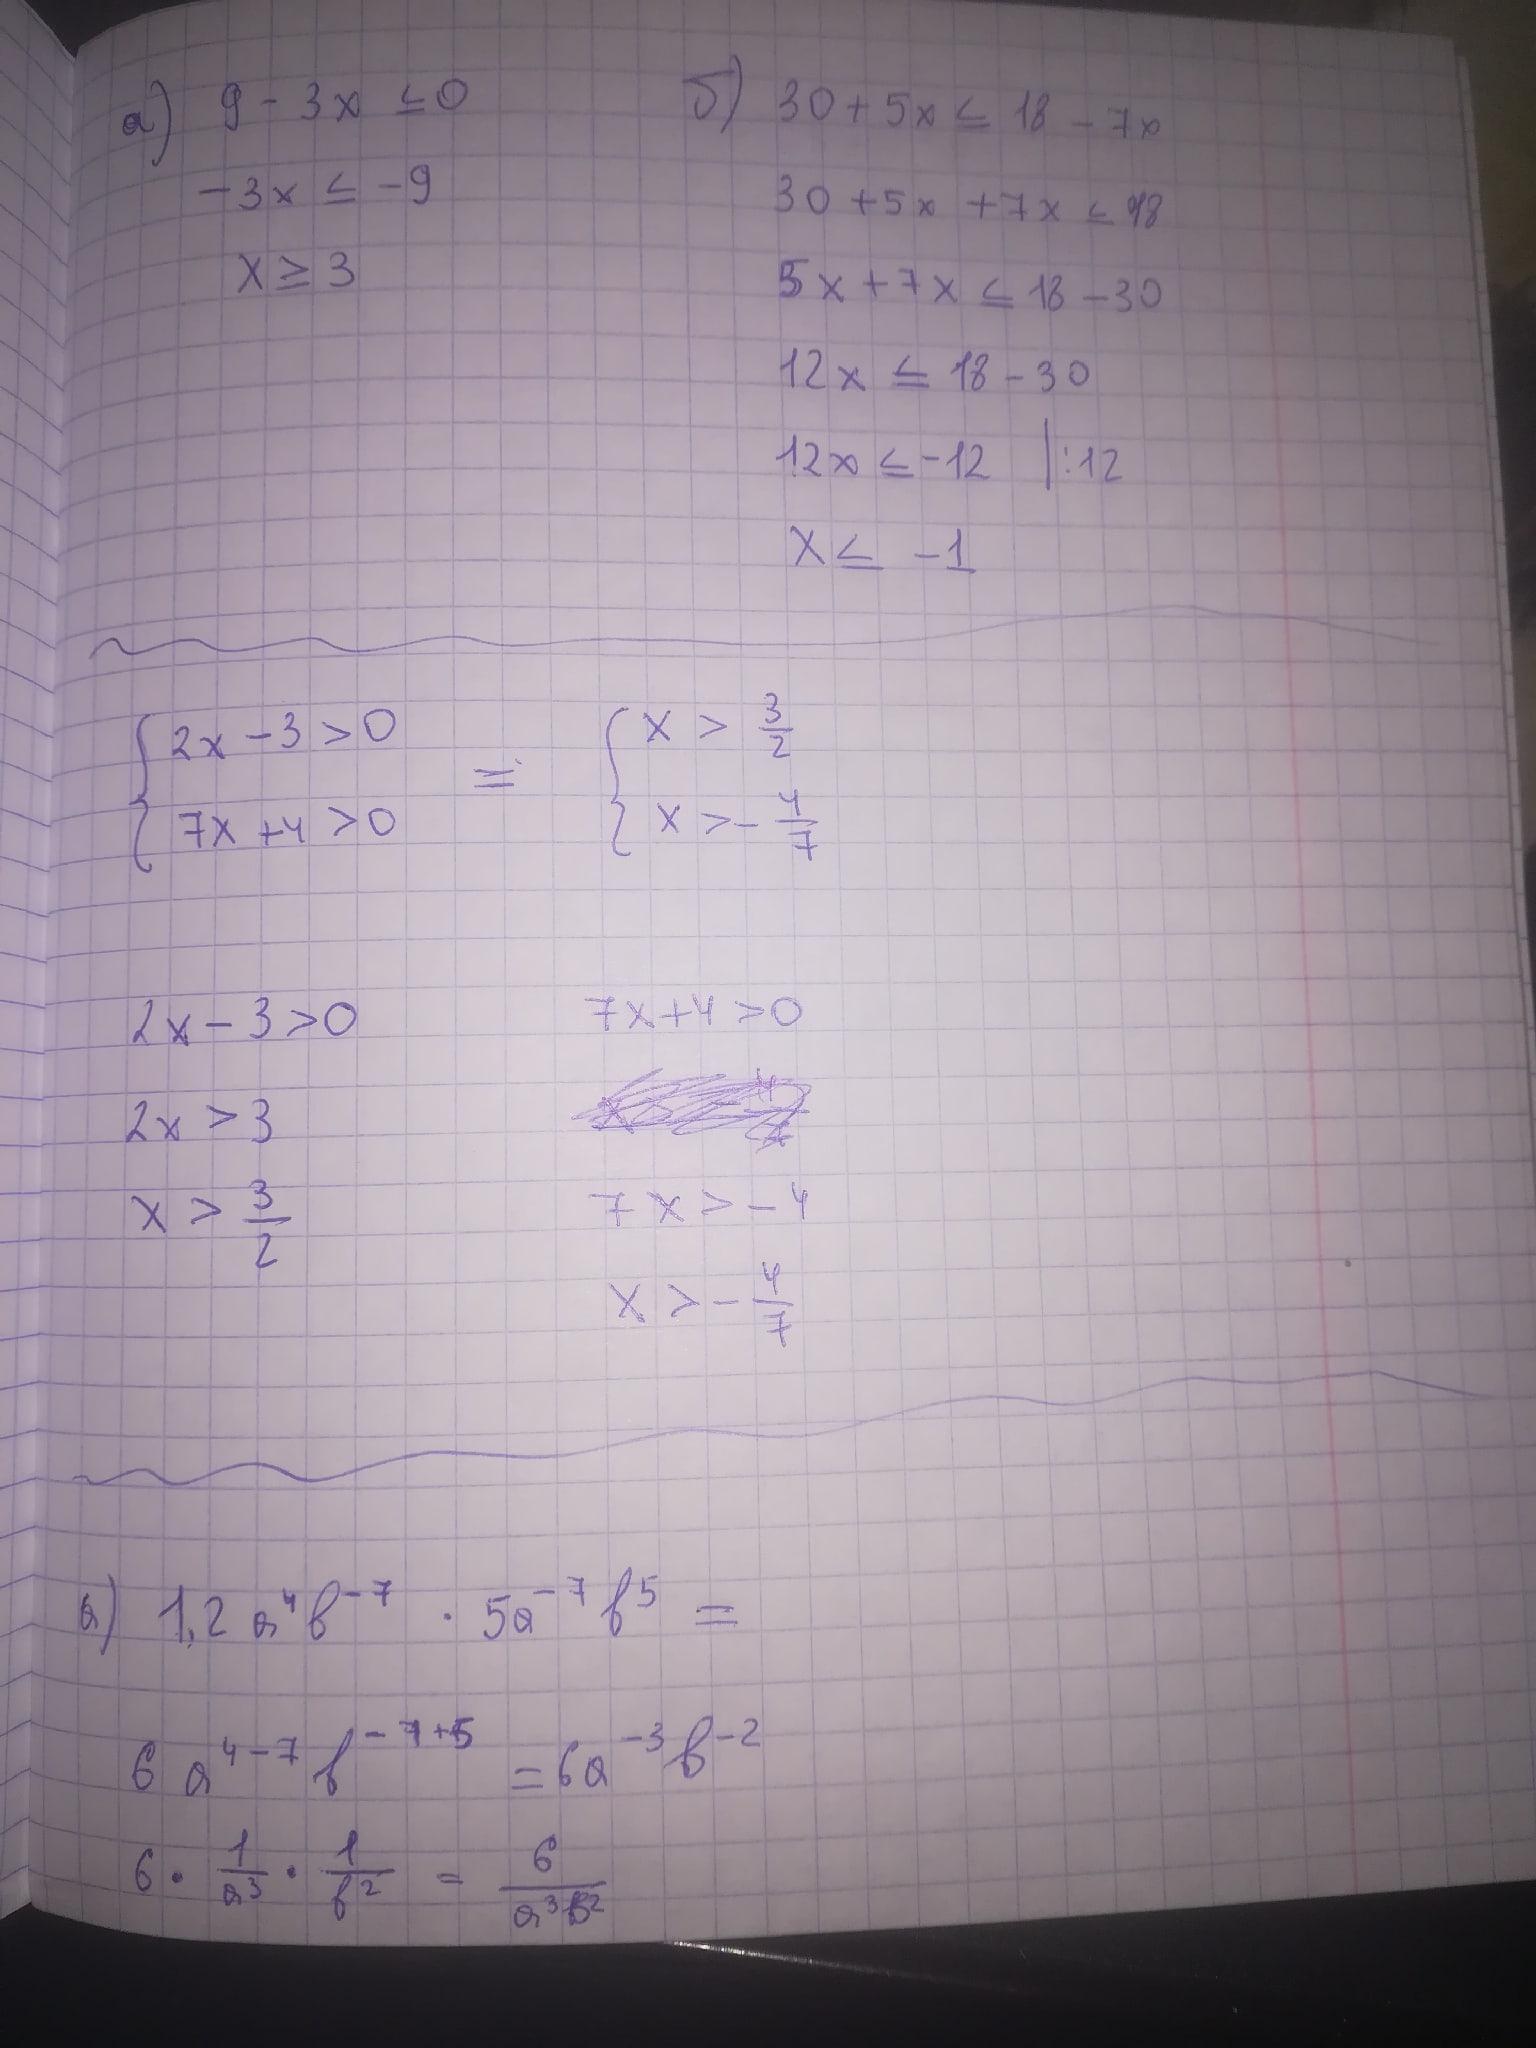 а) 9 - 3x ≤ 0
-3x ≤ -9
x ≥ 3
б) 30 + 5x ≤ 18 - 7x
30 + 5x + 7x ≤ 18
5x + 7x ≤ 18 - 30
12x ≤ 18 - 30
12x ≤ -12 |:12
x ≤ -1
{ 2x - 3 > 0
7x + 4 > 0
=
{ x > 3/2
x > - 4/7
2x - 3 > 0
2x > 3
x > 3/2
7x + 4 > 0
7x > -4
x > - 4/7
а) 1,2 a⁴b⁻⁷ · 5a⁻⁷b⁵ =
6 a⁴⁻⁷ b⁻⁷⁺⁵ = 6a⁻³b⁻²
6 · 1/a³ · 1/b² = 6/a³b²